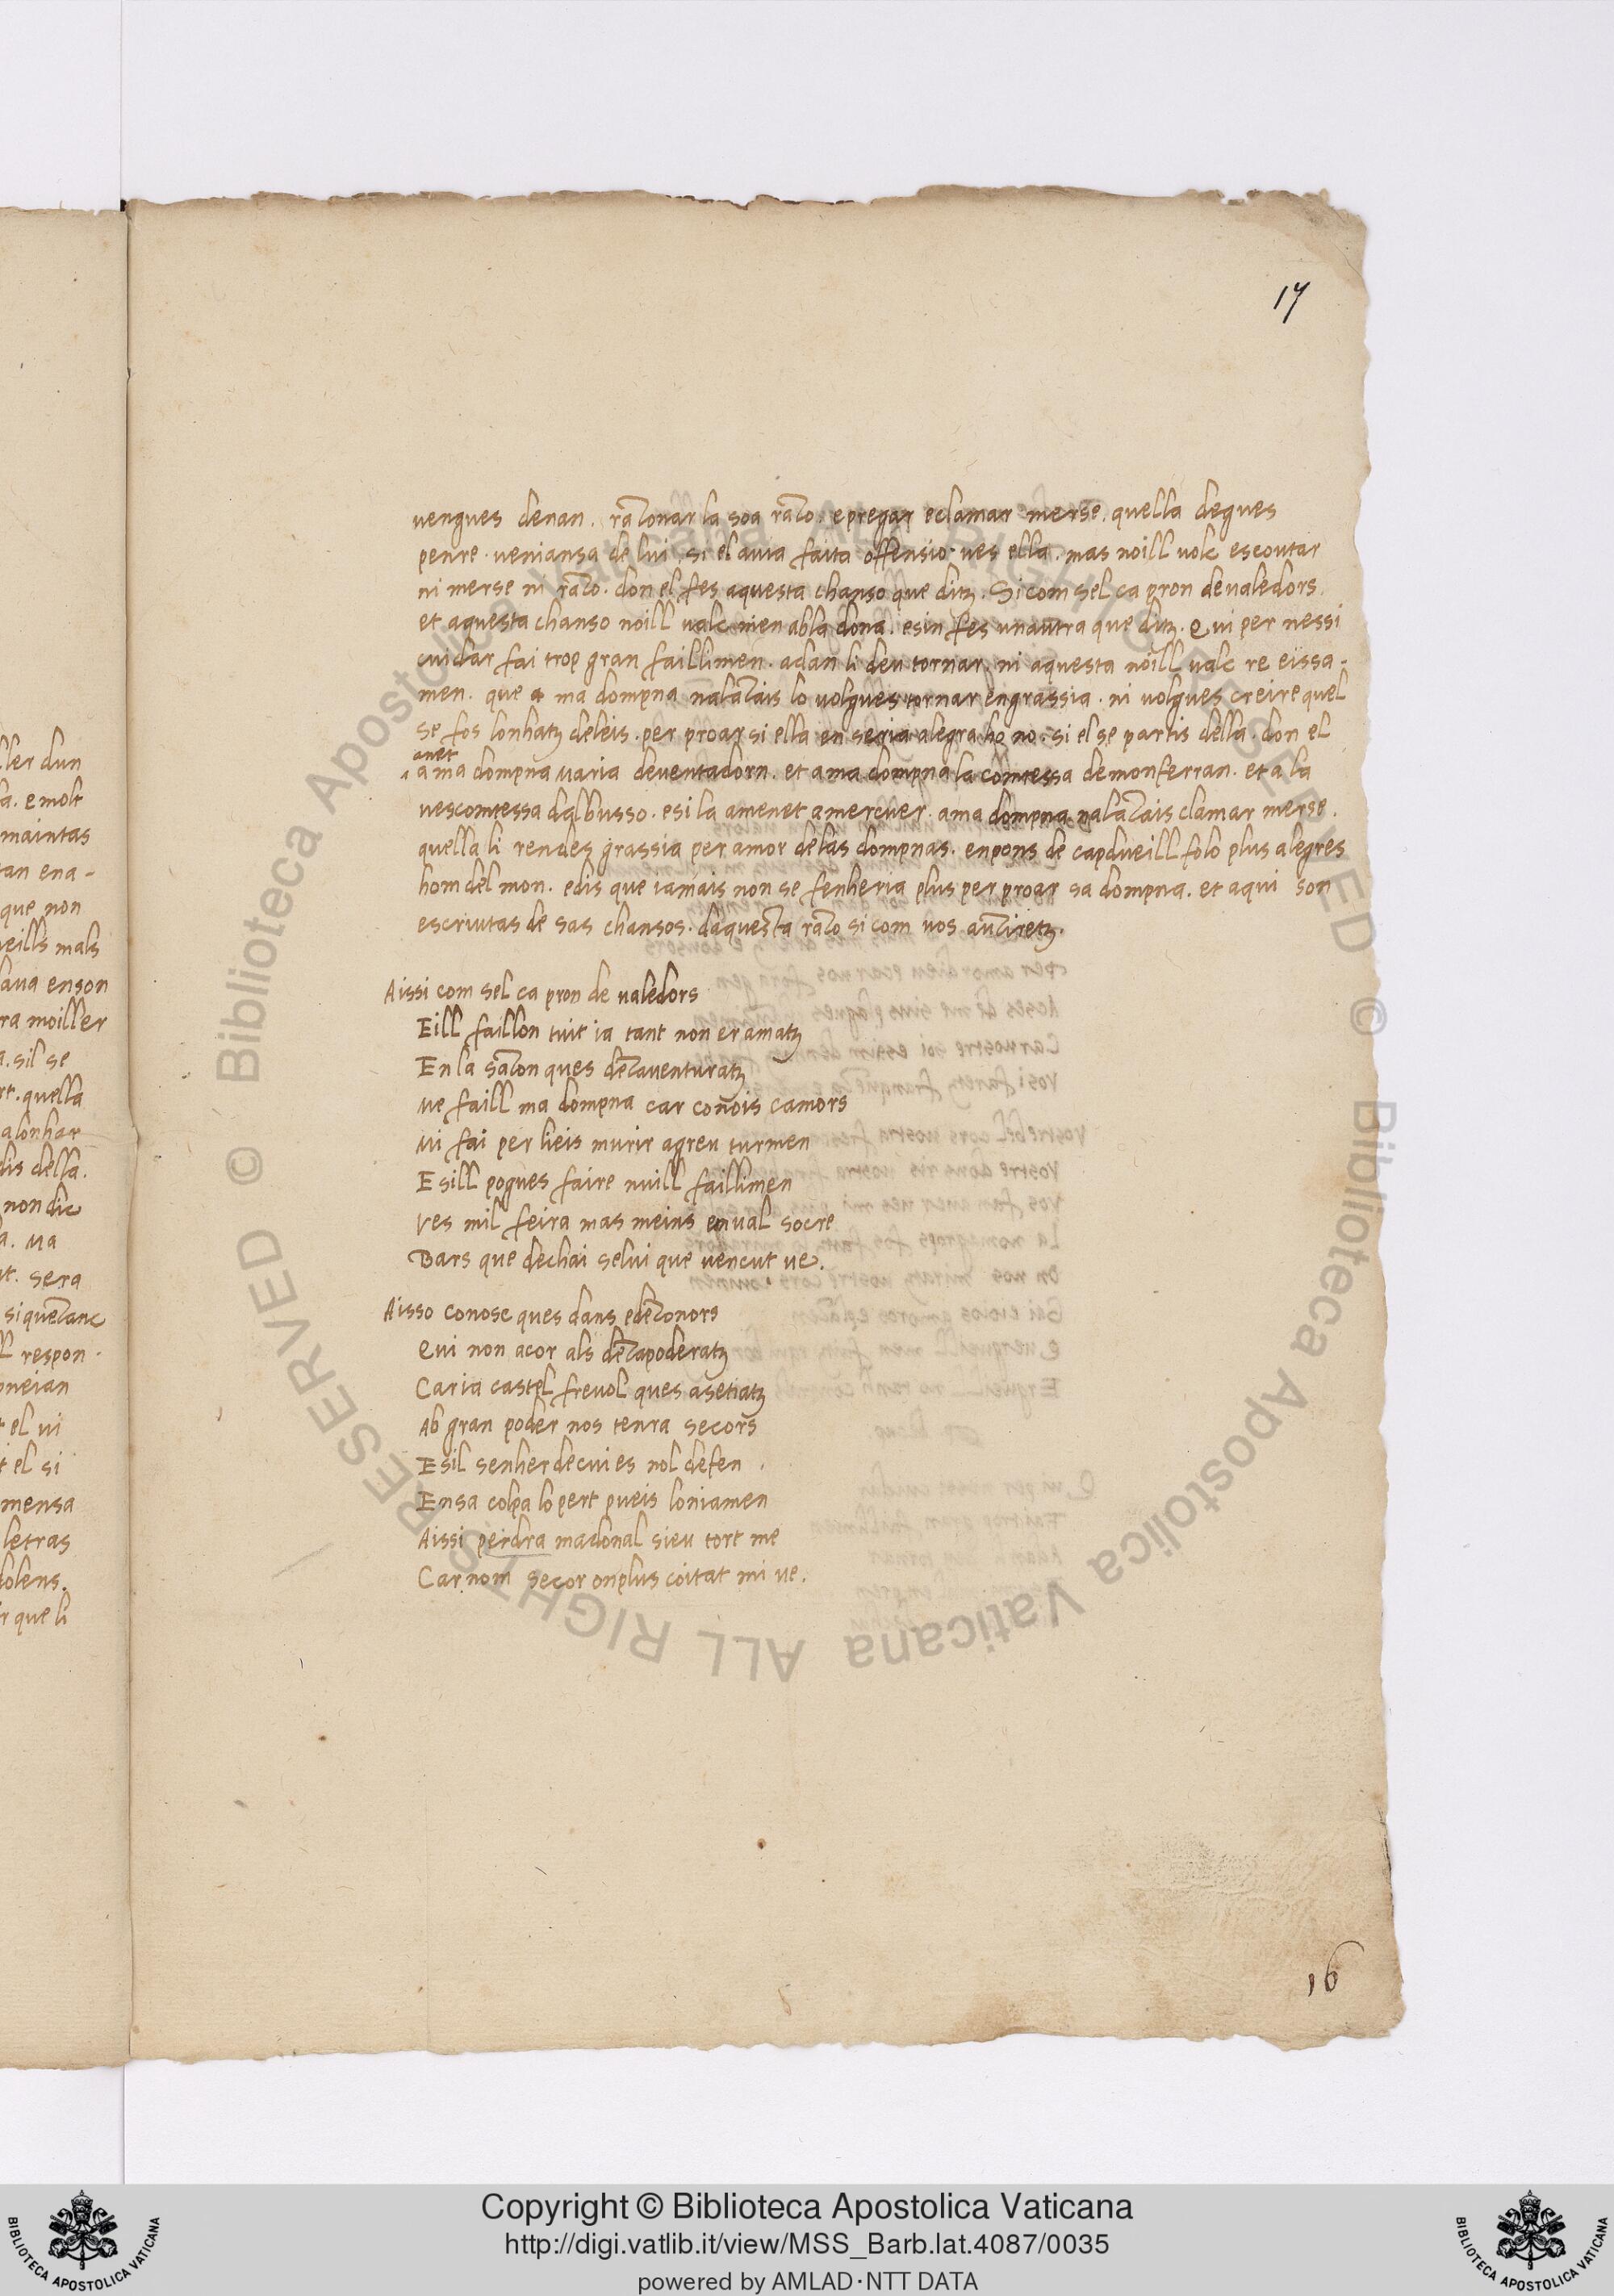 17
vengues denan. raZonar la soa raZo. epregar eclamar merse. quella degues
penre. veniansa de lui. si el avia faita offensio ves ella. mas noill volc escoutar
ni merse ni raZo. don el fes aquesta chanso que ditz. Si com sel ca pron de valedors.
et aquesta chanso noill valc nien ab la dona. esin fes unautra que ditz. Qui per nessi
cuidar fai trop gran faillimen. a dan li deu tornar. ni aquesta noill valc re eissa-
men. que ma dompna nalaZais lo volgues tornar engrassia. ni volgues creire quel
se fos lonhatz deleis. per proar si ella en seria alegra ho no. si el se partis della. don el
anet
ama dompna Maria deventadorn. et ama dompna la comtessa demonferran. et a la
vescomtessa dalbusso. esi la amenet amercuer. ama dompna nalaZais clamar merse.
quella li rendes grassia per amor delas dompnas. enpons de capdueill folo plus alegres
hom del mon. edis que iamais non se fenheria plus per proar sa dompna. et aqui son
escriutas de sas chansos. daquesta raZo si com vos auZiretz.
Aissi com sel ca pron de valedors
Eill faillon tuit ia tant non er amatz
En la saZon ques deZaventuratz
Me faill ma dompna car conois camors
Mi fai per lieis murir agreu turmen
E sill pogues faire nuill faillimen
Ves mil feira mas meins en val socre
Bars que dechai selui que vencut ve.
Aisso conosc ques dans edeZonors
Qui non acor als deZapoderatz
Car ia castel frevol ques asetiatz
Ab gran poder nos tenra secors
E sil senher de cui es nol defen.
En sa colpa lo pert pueis loniamen
Aissi perdra madonal sieu tort me
Car nom secor on plus coitat mi ve.
16
ller dun
a. emolt
maintas
tan ena-
que non
veills mals
lava enson
ra moiller
a. sil se
rt. quella
alonhar
dis della.
non dic
a. Ma
t. sera
si queZanc
l respon.
oneian
t el vi
t el si
mensa
letras
dolens.
r que li
Copyright © Biblioteca Apostolica Vaticana
http://digi.vatlib.it/view/MSS_Barb.lat.4087/0035
powered by AMLAD·NTT DATA
BIBLIOTECA APOSTOLICA VATICANA
BIBLIOTECA APOSTOLICA VATICANA
© Biblioteca Apostolica Vaticana ALL RIGHTS RESERVED © Biblioteca Apostolica Vaticana ALL RIGHTS RESERVED